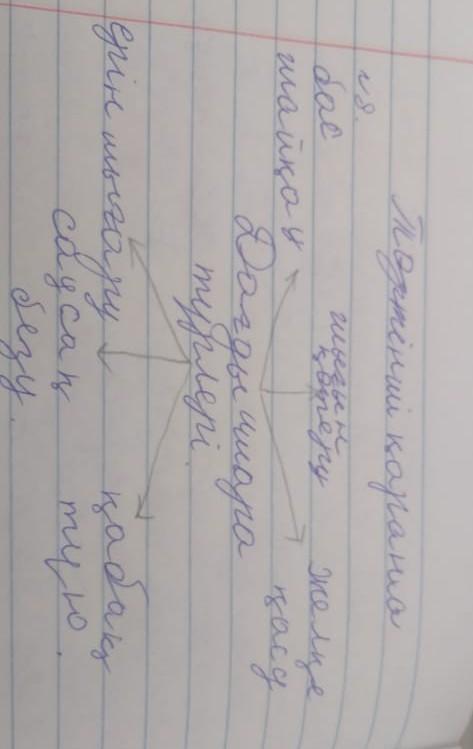 Төртінші қараша
№8.
бас
шайқау
иығын
көтеру
желке
қасу
Дағды ишара
түрлері.
ерін шығару
саусақ
безу.
қабақ
түю.